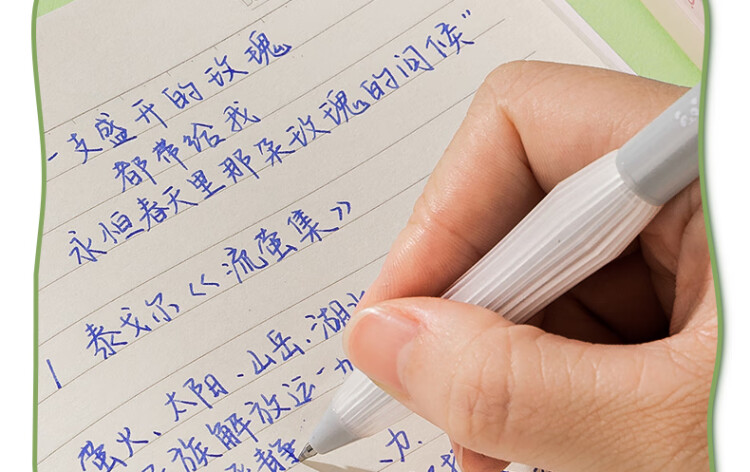 一支盛开的玫瑰
都带给我
永恒春天里那朵玫瑰的问候”
泰戈尔《流萤集》
萤火、太阳、山岳、湖
族解放运
静
力.